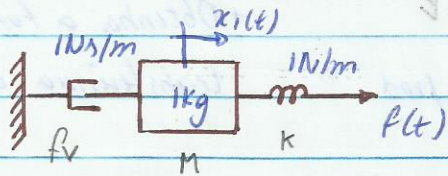 x₁(t)
1Ns/m
1N/m
1kg
f(t)
fv
M
K